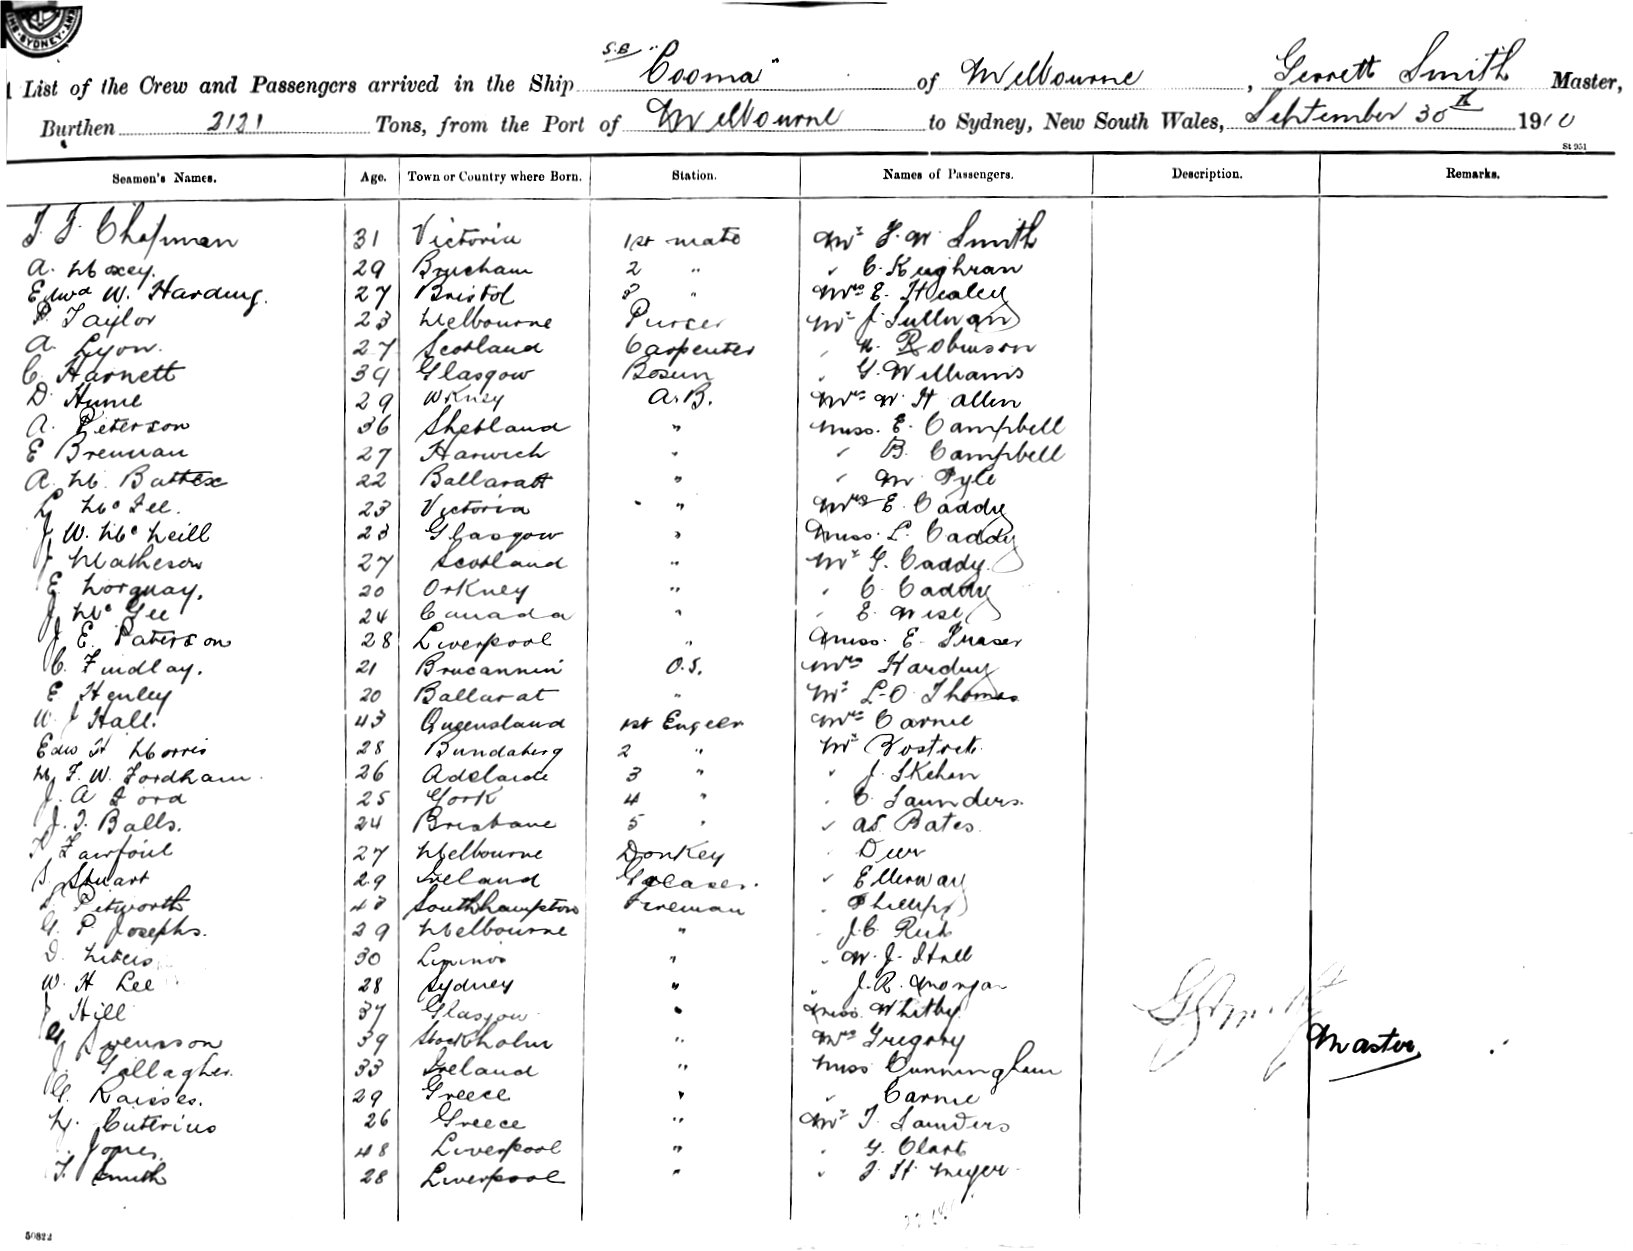 SYDNEY
List of the Crew and Passengers arrived in the Ship S.S. "Cooma" of Melbourne, Gerrett Smith Master,
Burthen 2121 Tons, from the Port of Melbourne to Sydney, New South Wales, September 30th 1910
St 951
Seamen's Names. Age. Town or Country where Born. Station. Names of Passengers. Description. Remarks.
Chapman 31 Victoria 1st mate Mr F. W. Smith
A. Moxey. 29 2 " " C. Keighran
Edwd W. Harding. 27 Bristol 3 " Mrs E. Healey
P. Taylor 23 Melbourne Purser Mr J. Sullivan
A. Lyon. 27 Scotland Carpenter " Robinson
C. Harnett 39 Glasgow Bosun " G. Williams
D. Hume 29 Orkney A.B. Mrs W. H Allen
A. Peterson 36 Shetland " Miss. E. Campbell
E Brennan 27 Harwich " " B. Campbell
A. M. 22 Ballaratt " " M. Pyle
L McFee. 23 Victoria " Mrs E. Caddy
J W. McNeill 23 Glasgow " Miss. L. Caddy
J Matheson 27 Scotland " Mr G. Caddy.
E Norquay. 20 Orkney " " C. Caddy
J McGee 24 Canada " " E. Wise
J E. Paterson 28 Liverpool " Miss. E. Fraser
C. Findlay. 21 O.S. Mrs Harding
E Henley 20 Ballarat " Mr L. O. Thomas
W. J Hall. 43 Queensland 1st Engeer Mrs Carnie
Edw H Morris 28 Bundaberg 2 " Mr
M. F. W. Fordham. 26 Adelaide 3 " " J. Skehan
J. A Ford 25 York 4 " " C. Saunders.
J. T. Balls. 24 Brisbane 5 " " Bates.
Fairfoul 27 Melbourne Donkey "
Stuart 29 Ireland Greaser. " Ellerway
Petworth 43 Southhampton Fireman " Phillips
G. P. Josephs. 29 Melbourne " " J. C.
D. 30 " " W. J. Hall
W. H Lee 28 Sydney " " J. R. Morgan
J Hill 37 Glasgow " Miss. Whitby
Svensson 39 Stockholm " Mrs Gregory
J. Gallagher. 33 Ireland " Miss Cunningham
G. Raisses. 29 Greece " " Carnie
26 Greece " Mr T. Saunders
Jones. 48 Liverpool " " G. Clark
F. Smith 28 Liverpool " " J. H. Meyer
G Smith
Master
50822